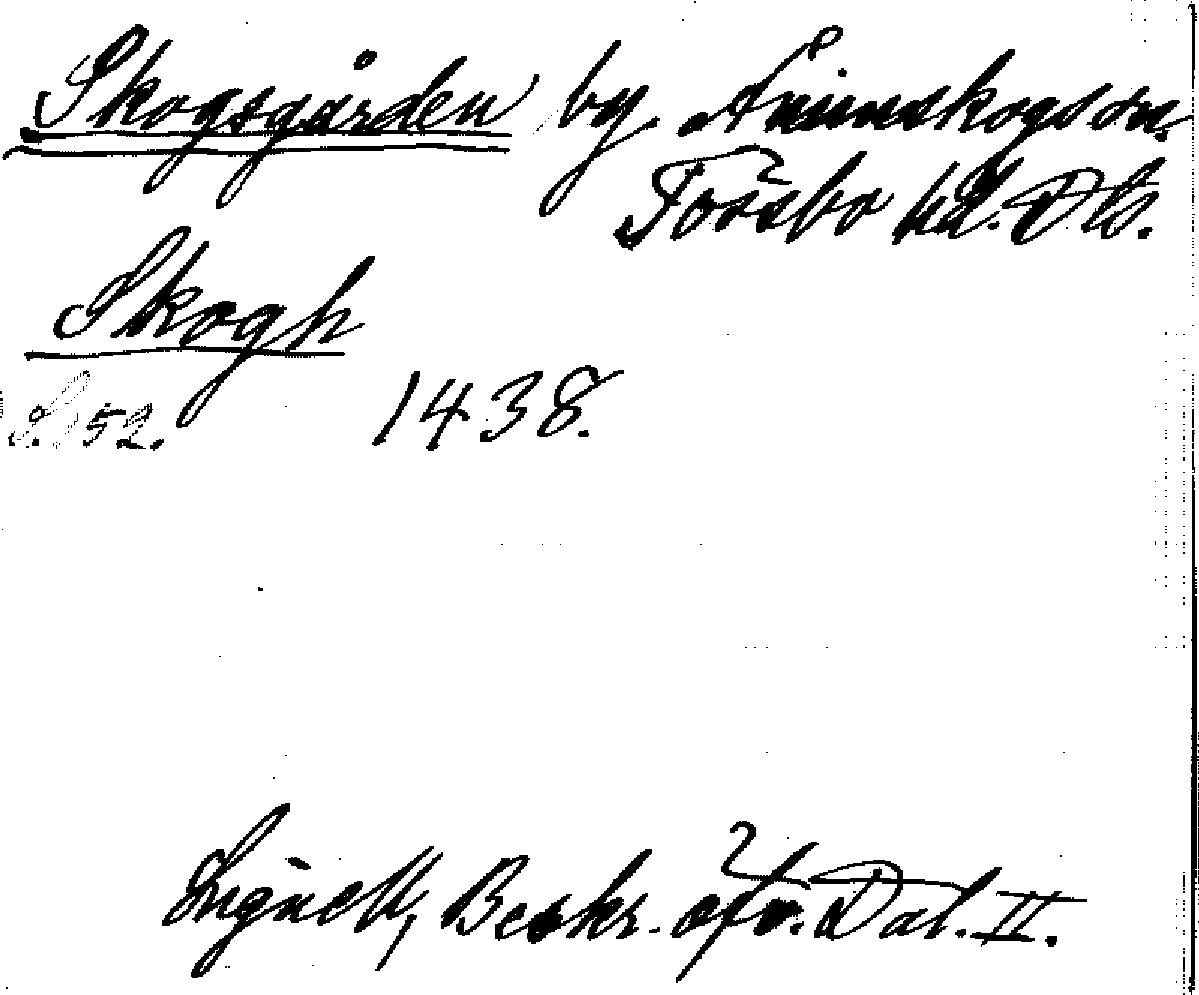 Skogsgården by Ånimskogs sn.
Tössbo hd. Dls.
Skogh
S. 52. 1438.
Lignell, Beskr. öfv. Dal. II.